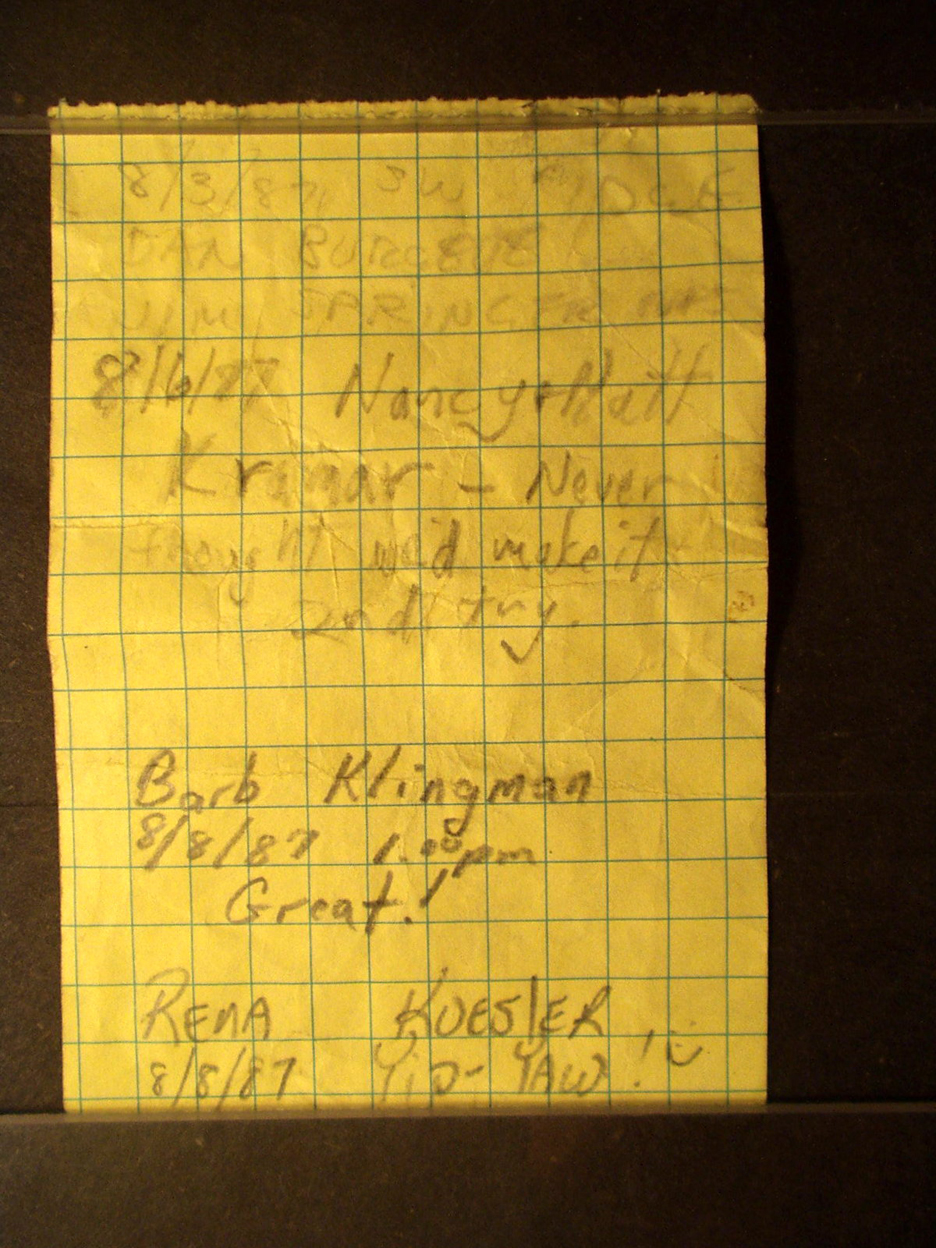 8/3/87 SW RIDGE
DAN
JIM SPRINGER
8/6/87 Nancy & Matt
Kramar - Never
thought we'd make it!
2nd try.
Barb Klingman
8/8/87 1:00 pm
Great!
RENA KUESLER
8/8/87 YiD- YAW!